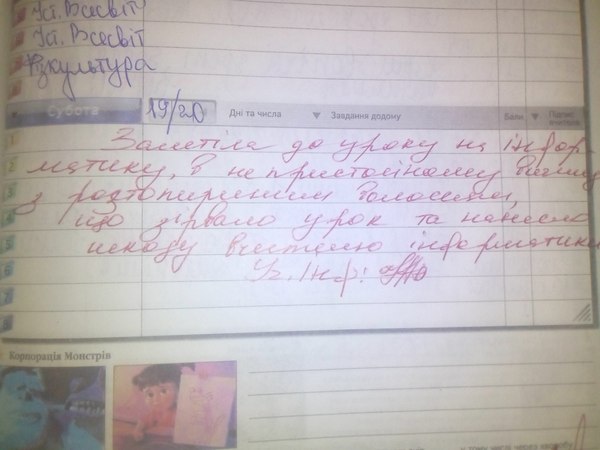 Іст. Всесвіт
Іст. Всесвіт
Фізкультура
Субота 19/20 Дні та числа Завдання додому Бали Підпис вчителя
1 Залетіла до уроку на інфор-
2 матику, в не пристосіному вигляд
3 з розтопиреним волоссям,
4 що зірвало урок та нанесло
5 шкоду вчителю інформатики
6 Уч. Інф.
7
8
Корпорація Монстрів